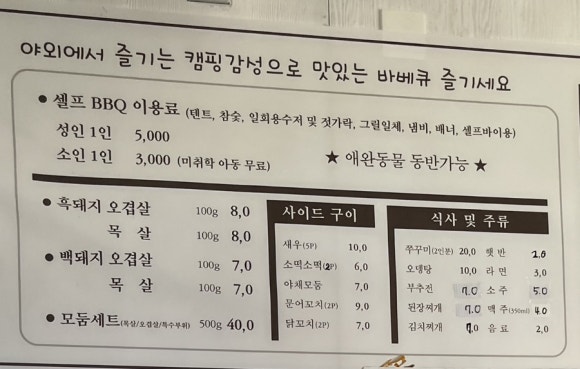 야외에서 즐기는 캠핑감성으로 맛있는 바베큐 즐기세요
• 셀프 BBQ 이용료 (텐트, 참숯, 일회용수저 및 젓가락, 그릴일체, 냄비, 배너, 셀프바이용)
성인 1인 5,000
소인 1인 3,000 (미취학 아동 무료)
★ 애완동물 동반가능 ★
• 흑돼지 오겹살 100g 8,0
목 살 100g 8,0
• 백돼지 오겹살 100g 7,0
목 살 100g 7,0
• 모둠세트(목살/오겹살/특수부위) 500g 40,0
사이드 구이
새우(5P) 10,0
소떡소떡(2P) 6,0
야채모둠 7,0
문어꼬치(2P) 9,0
닭꼬치(2P) 7,0
식사 및 주류
쭈꾸미(2인분) 20,0 햇 반 2.0
오뎅탕 10,0 라 면 3,0
부추전 7.0 소 주 5.0
된장찌개 7.0 맥 주(350ml) 4.0
김치찌개 7,0 음 료 2,0